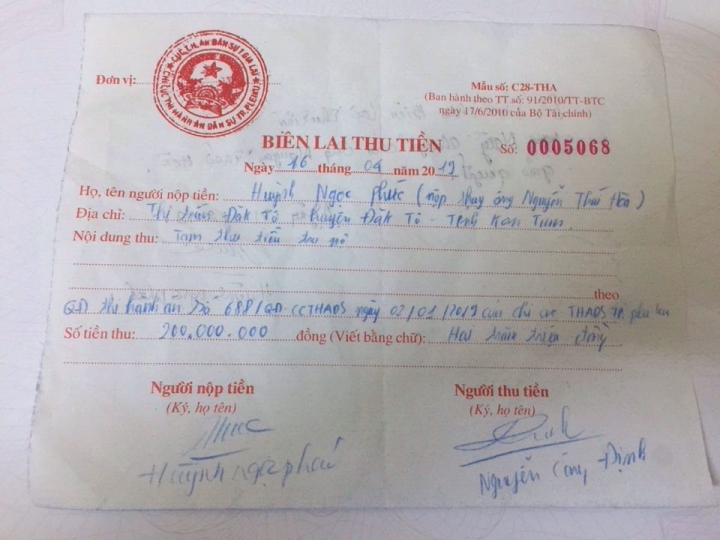 CỤC T.H. ÁN DÂN SỰ T. GIA LAI
CHI CỤC THI HÀNH ÁN DÂN SỰ TP. PLEIKU
Đơn vị:
Mẫu số: C28-THA
(Ban hành theo TT số: 91/2010/TT-BTC
ngày 17/6/2010 của Bộ Tài chính)
BIÊN LAI THU TIỀN
Số: 0005068
Ngày 16 tháng 04 năm 2019
Họ, tên người nộp tiền: Huỳnh Ngọc Phúc (nộp thay ông Nguyễn Thái Hòa)
Địa chỉ: Thị trấn Đăk Tô, huyện Đăk Tô - Tỉnh Kon Tum.
Nội dung thu: Tạm thu tiền trả nợ
theo
QĐ thi hành án số 688/QĐ-CCTHADS ngày 02/01/2019 của chi cục THADS TP.
Số tiền thu: 200.000.000 đồng (Viết bằng chữ): Hai trăm triệu đồng
Người nộp tiền
(Ký, họ tên)
Người thu tiền
(Ký, họ tên)
Phúc
Huỳnh Ngọc Phúc
Định
Nguyễn Công Định